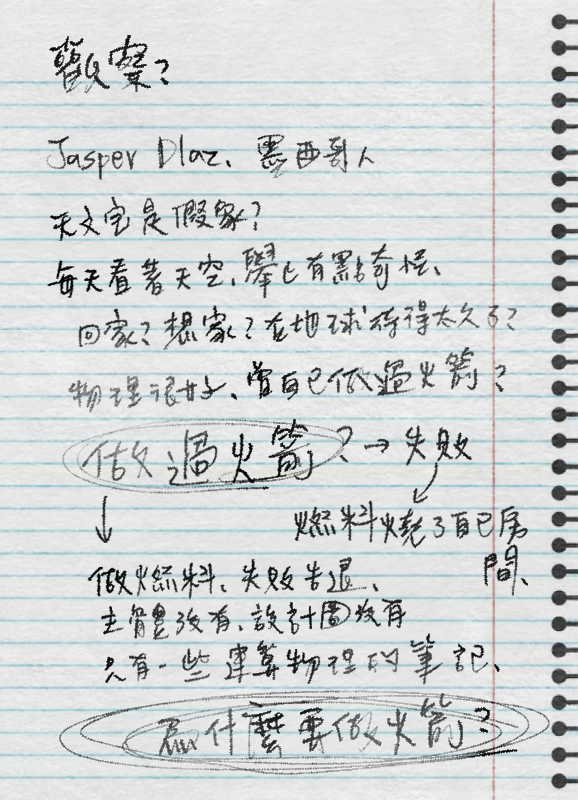 觀察?
Jasper Diaz、墨西哥人
天文宅是假象?
每天看著天空、舉止有點奇怪、
回家?想家?在地球待得太久了?
物理很好、曾自己做過火箭?
做過火箭?→失敗
燃料燒了自己房間、
做燃料、失敗告退、
主體沒有、設計圖沒有
只有一些運算物理的筆記、
為什麼要做火箭?